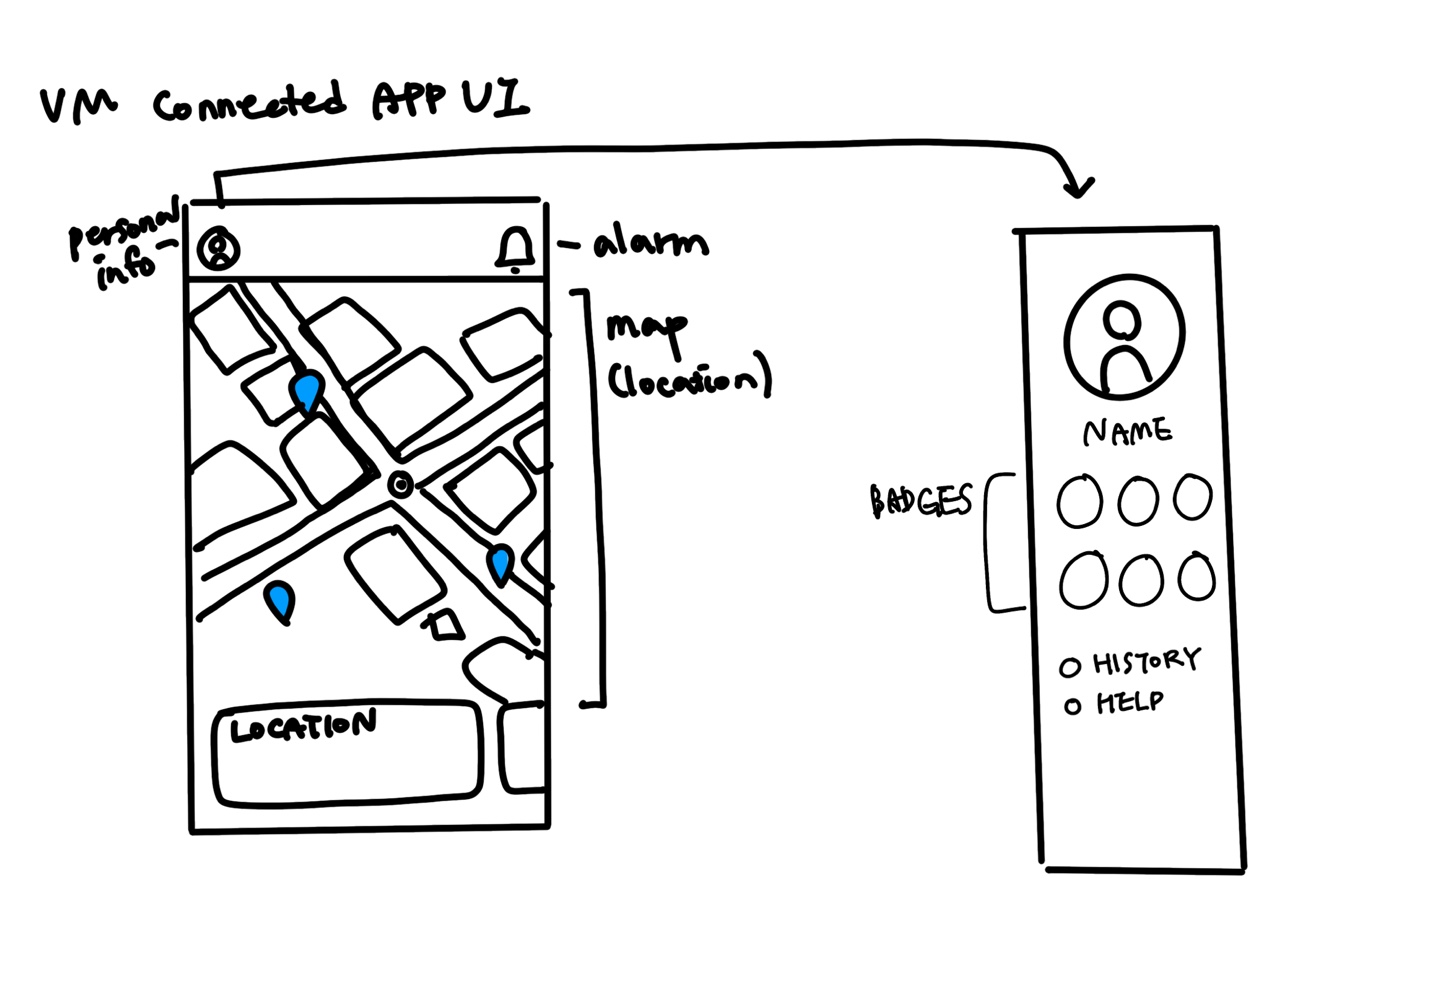 VM Connected APP UI
personal
info
alarm
map
(location)
LOCATION
NAME
BADGES
HISTORY
HELP